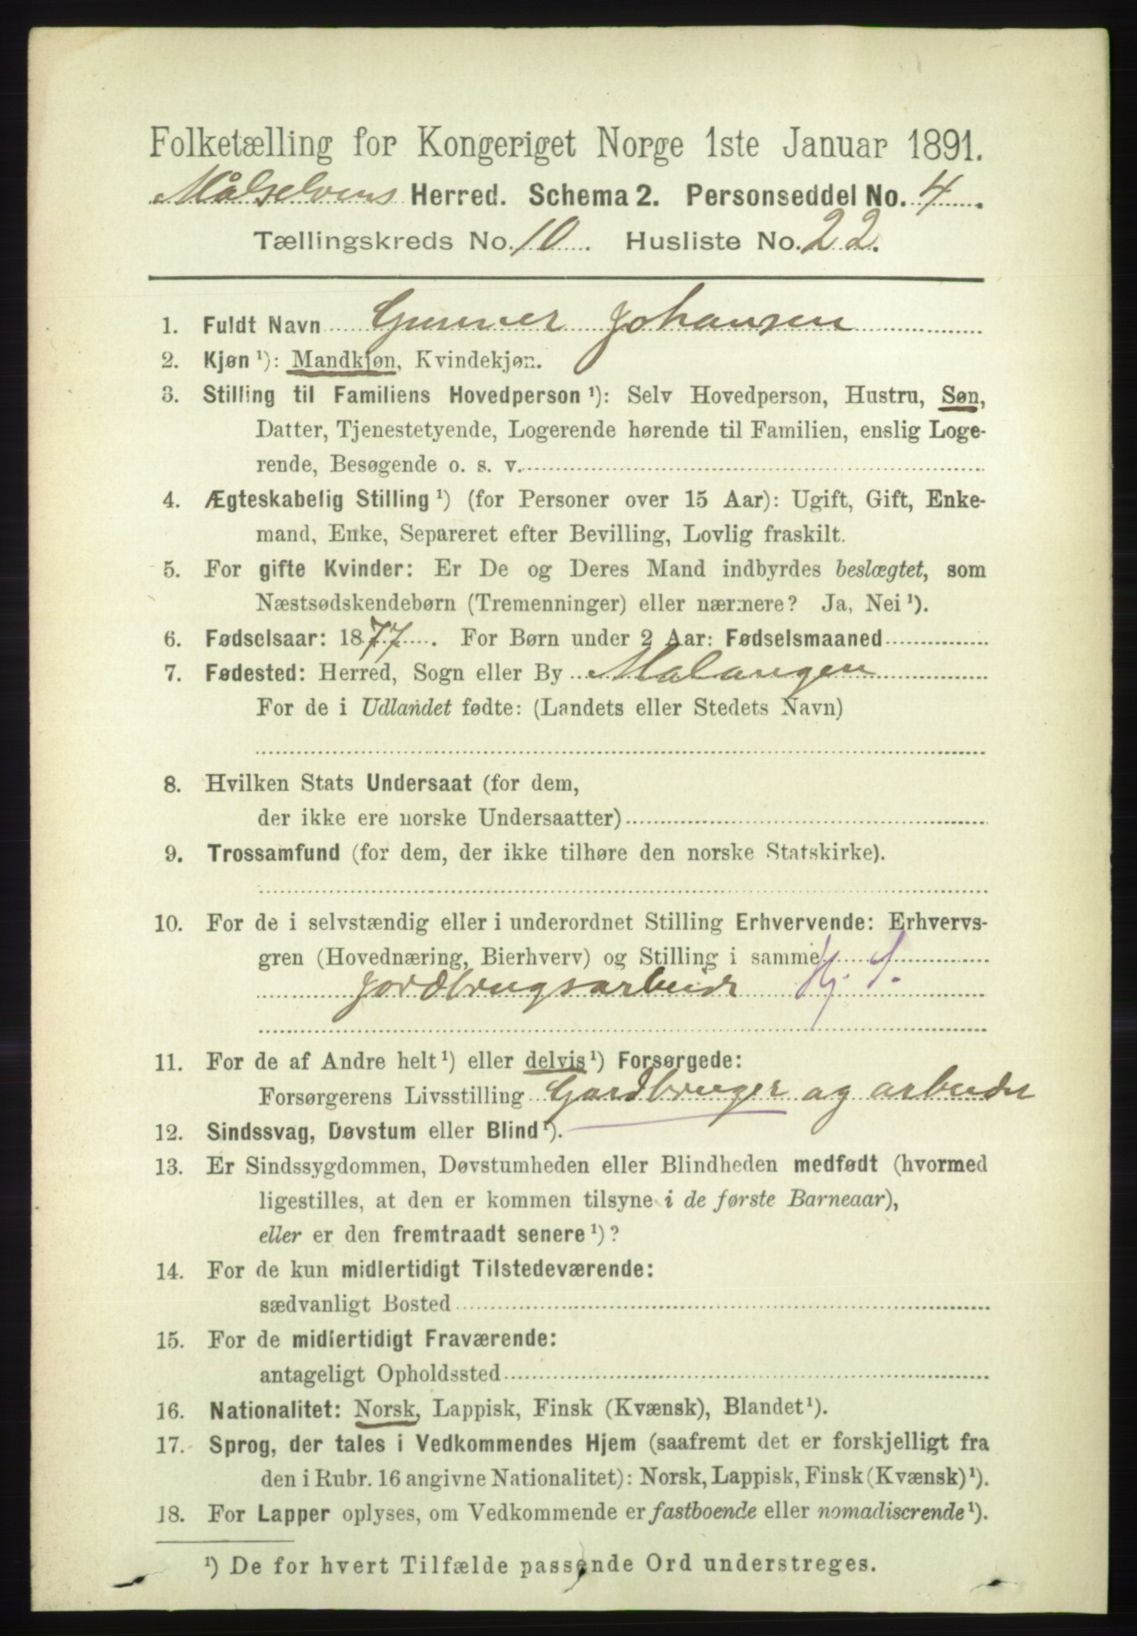 Folketælling for Kongeriget Norge 1ste Januar 1891.
Målselvens Herred. Schema 2. Personseddel No. 4.
Tællingskreds No. 10. Husliste No. 22.
1. Fuldt Navn Gunner Johansen
2. Kjøn ¹): Mandkjøn, Kvindekjøn.
3. Stilling til Familiens Hovedperson ¹): Selv Hovedperson, Hustru, Søn,
Datter, Tjenestetyende, Logerende hørende til Familien, enslig Loge-
rende, Besøgende o. s. v.
4. Ægteskabelig Stilling ¹) (for Personer over 15 Aar): Ugift, Gift, Enke-
mand, Enke, Separeret efter Bevilling, Lovlig fraskilt.
5. For gifte Kvinder: Er De og Deres Mand indbyrdes beslægtet, som
Næstsødskendebørn (Tremenninger) eller nærmere? Ja, Nei ¹).
6. Fødselsaar: 1877. For Børn under 2 Aar: Fødselsmaaned
7. Fødested: Herred, Sogn eller By Malangen
For de i Udlandet fødte: (Landets eller Stedets Navn)
8. Hvilken Stats Undersaat (for dem,
der ikke ere norske Undersaatter)
9. Trossamfund (for dem, der ikke tilhøre den norske Statskirke).
10. For de i selvstændig eller i underordnet Stilling Erhvervende: Erhvervs-
gren (Hovednæring, Bierhverv) og Stilling i samme
Jordbrugsarbeide Hj. S.
11. For de af Andre helt ¹) eller delvis ¹) Forsørgede:
Forsørgerens Livsstilling Gardbruger og arbeider
12. Sindssvag, Døvstum eller Blind ¹).
13. Er Sindssygdommen, Døvstumheden eller Blindheden medfødt (hvormed
ligestilles, at den er kommen tilsyne i de første Barneaar),
eller er den fremtraadt senere ¹)?
14. For de kun midlertidigt Tilstedeværende:
sædvanligt Bosted
15. For de midlertidigt Fraværende:
antageligt Opholdssted
16. Nationalitet: Norsk, Lappisk, Finsk (Kvænsk), Blandet ¹).
17. Sprog, der tales i Vedkommendes Hjem (saafremt det er forskjelligt fra
den i Rubr. 16 angivne Nationalitet): Norsk, Lappisk, Finsk (Kvænsk) ¹).
18. For Lapper oplyses, om Vedkommende er fastboende eller nomadiserende ¹).
¹) De for hvert Tilfælde passende Ord understreges.